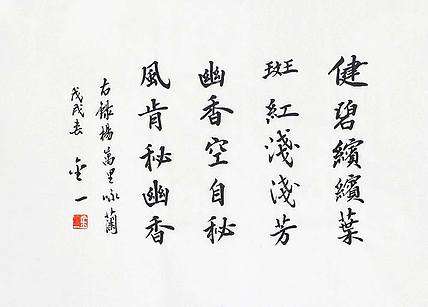 健碧繽繽葉
斑紅淺淺芳
幽香空自秘
風肯秘幽香
右錄楊萬里詠蘭
戊戌春 金一